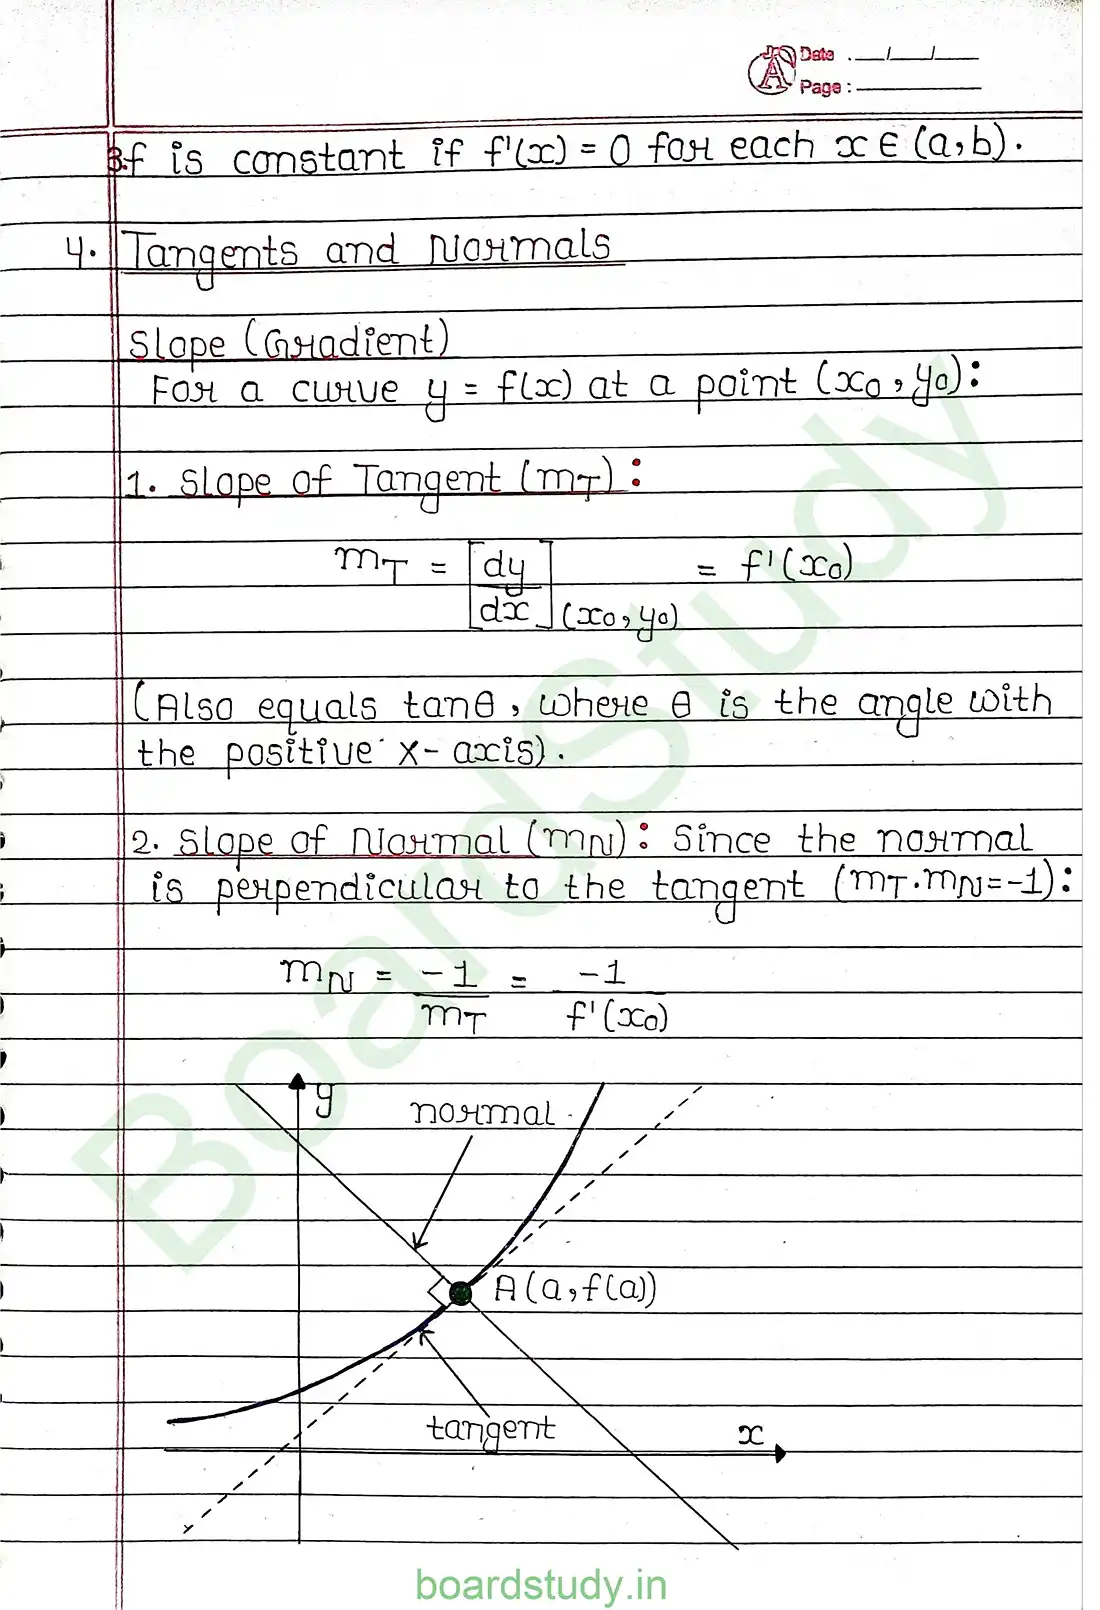 Date : __/__/__
Page :
3. f is constant if f'(x) = 0 for each x ∈ (a, b).
4. Tangents and Normals
Slope (Gradient)
For a curve y = f(x) at a point (x₀, y₀):
1. Slope of Tangent (m_T):
m_T = [dy/dx](x₀, y₀) = f'(x₀)
(Also equals tanθ, where θ is the angle with
the positive x-axis).
2. Slope of Normal (m_N): Since the normal
is perpendicular to the tangent (m_T . m_N = -1):
m_N = -1/m_T = -1/f'(x₀)
y
normal
A(a, f(a))
tangent
x
BoardStudy
boardstudy.in